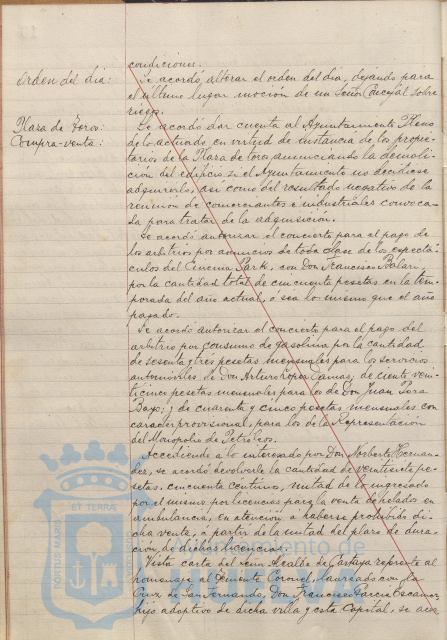 condiciones.
Orden del dia: Se acordó, alterar el orden del dia, dejando para
el último lugar moción de un Señor Concejal sobre
riegos.
Plaza de Toros: Se acordó dar cuenta al Ayuntamiento Pleno
Compra-venta: de lo actuado en virtud de instancia de los propie-
tarios de la Plaza de toros, anunciando la demoli-
ción del edificio si el Ayuntamiento no decidiese
adquirirlo, asi como del resultado negativo de la
reunión de comerciantes é industriales convoca-
da para tratar de la adquisición.
Se acordó autorizar el concierto para el pago de
los arbitrios por anuncios de toda clase de los espectá-
culos del Cinema Park, con Don Francisco
por la cantidad total de cincuenta pesetas en la tem-
porada del año actual, ó sea lo mismo que el año
pasado.
Se acordó autorizar el concierto para el pago del
arbitrio por consumo de gasolina por la cantidad
de sesenta y tres pesetas mensuales para los servicios
automóviles de Don Arturo López Damas; de ciento vein-
ticinco pesetas mensuales para los de Don Juan
Bayo; y de cuarenta y cinco pesetas mensuales con
caracter provisional, para los de la Representación
del Monopolio de Petróleos.
Accediendo a lo interesado por Don Norberto Hernan-
dez, se acordó devolverle la cantidad de veintisiete pe-
setas cincuenta centimos, mitad de lo ingresado
por el mismo por licencias para la venta de helados en
ambulancia, en atención á haberse prohibido di-
cha venta, a partir de la mitad del plazo de dura-
ción de dichas licencias.
Vista carta del Alcalde de Cartaya referente al
homenaje al Teniente Coronel, laureado con la
Cruz de San Fernando, Don Francisco García Escamez,
hijo adoptivo de dicha villa y esta Capital, se acor
PORTUS MARIS
ET TERRA
Ayuntamiento de